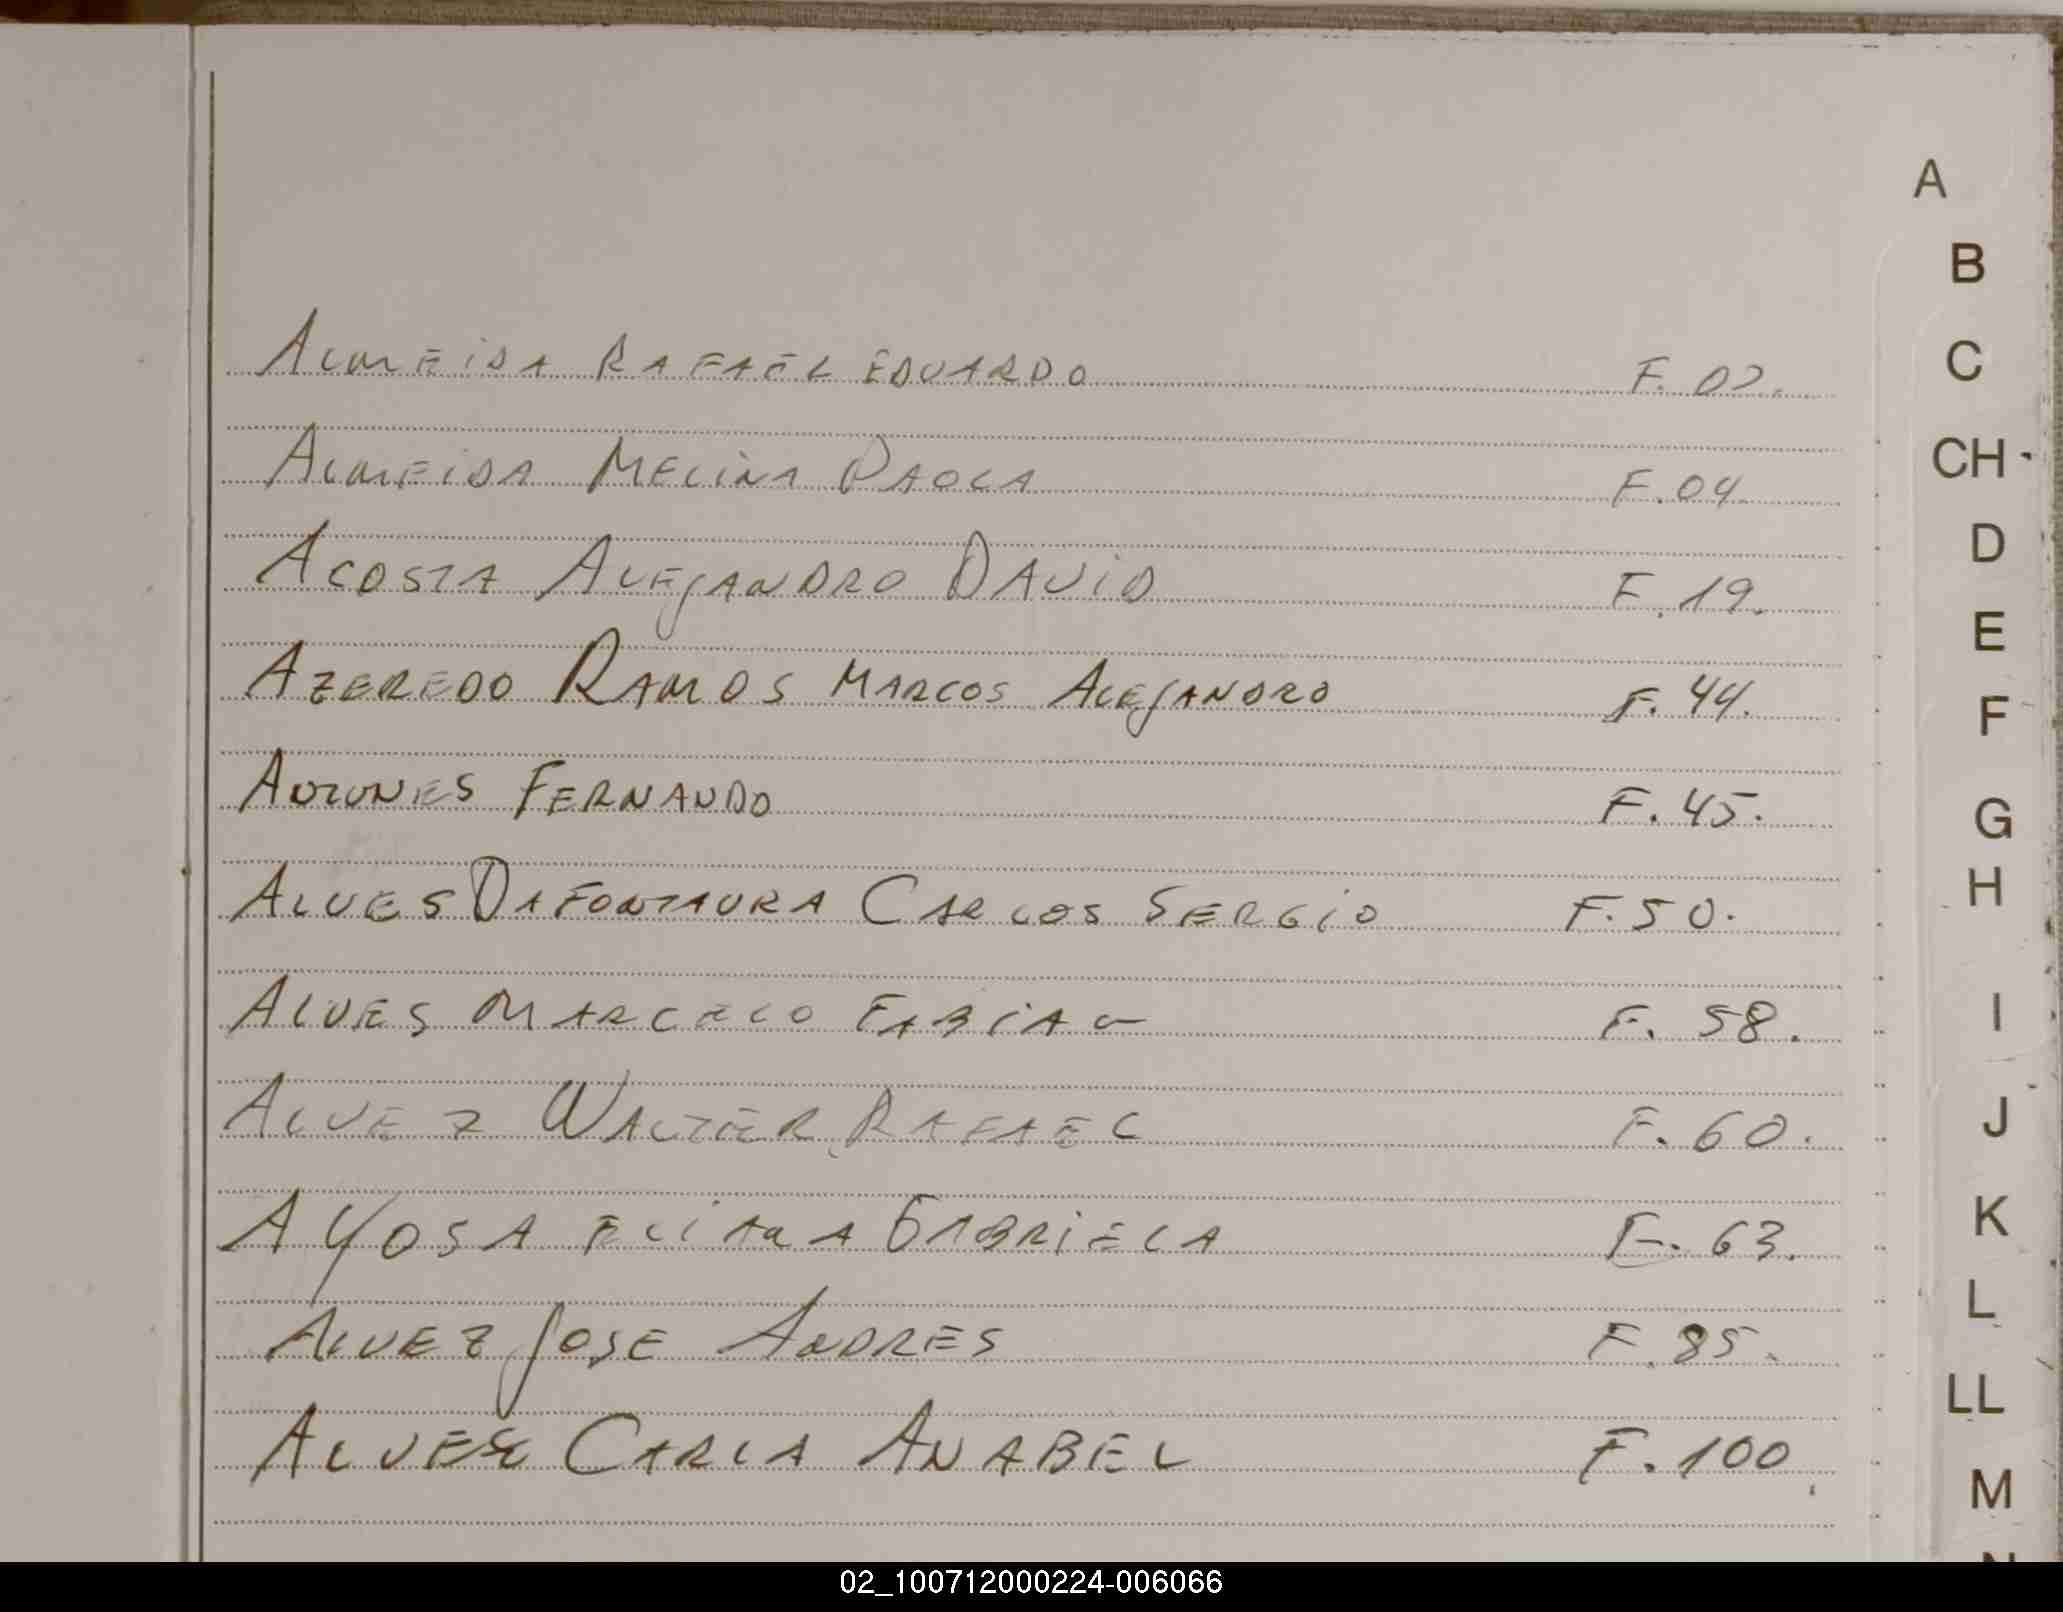 ALMEIDA RAFAEL EDUARDO F. 02.
ALMEIDA MELINA PAOLA F. 04
ACOSTA ALEJANDRO DAVID F. 19.
AZEREDO RAMOS MARCOS ALEJANDRO F. 44.
FERNANDO F. 45.
ALVES DAFONTAURA CARLOS SERGIO F. 50.
ALVES MARCELO FABIAN F. 58.
ALVEZ WALTER RAFAEL F. 60.
AYOSA ELIANA GABRIELA F. 63.
ALVEZ JOSE ANDRES F. 85.
CARLA ANABEL F. 100
A
B
C
CH
D
E
F
G
H
I
J
K
L
LL
M
02_100712000224-006066